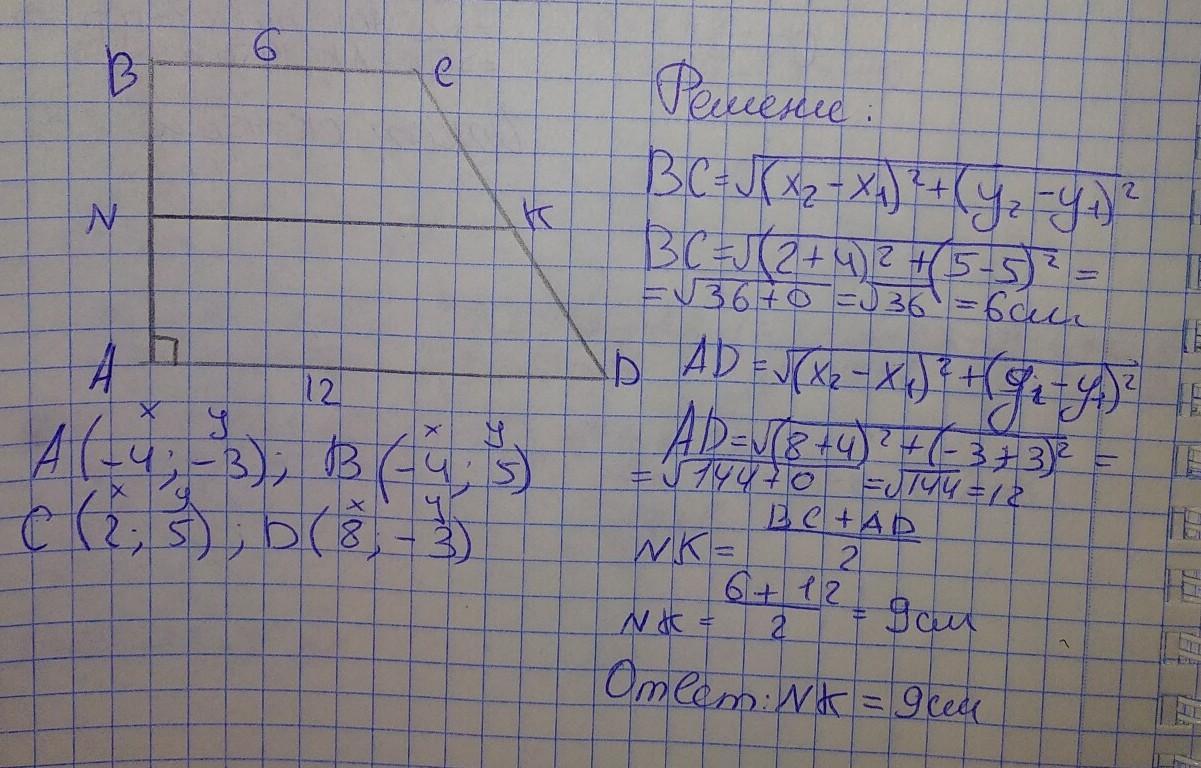 6
B C
N K
A D
12
x y x y
A(-4; -3); B(-4; 5)
x y x y
C(2; 5); D(8; -3)
Решение:
BC=√(x₂-x₁)²+(y₂-y₁)²
BC=√(2+4)²+(5-5)² =
=√36+0 =√36 = 6см
AD=√(x₂-x₁)²+(y₂-y₁)²
AD=√(8+4)²+(-3+3)² =
=√144+0 =√144=12
BC+AD
NK= 2
6+12
NK= 2 = 9см
Ответ: NK = 9см